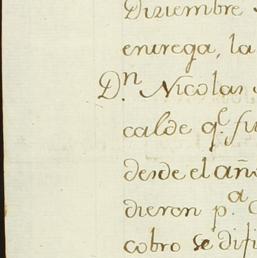 Diziembre
entrega, la
D.n Nicolas
calde q.e fu
desde el añ
dieron p.a
cobro se difi